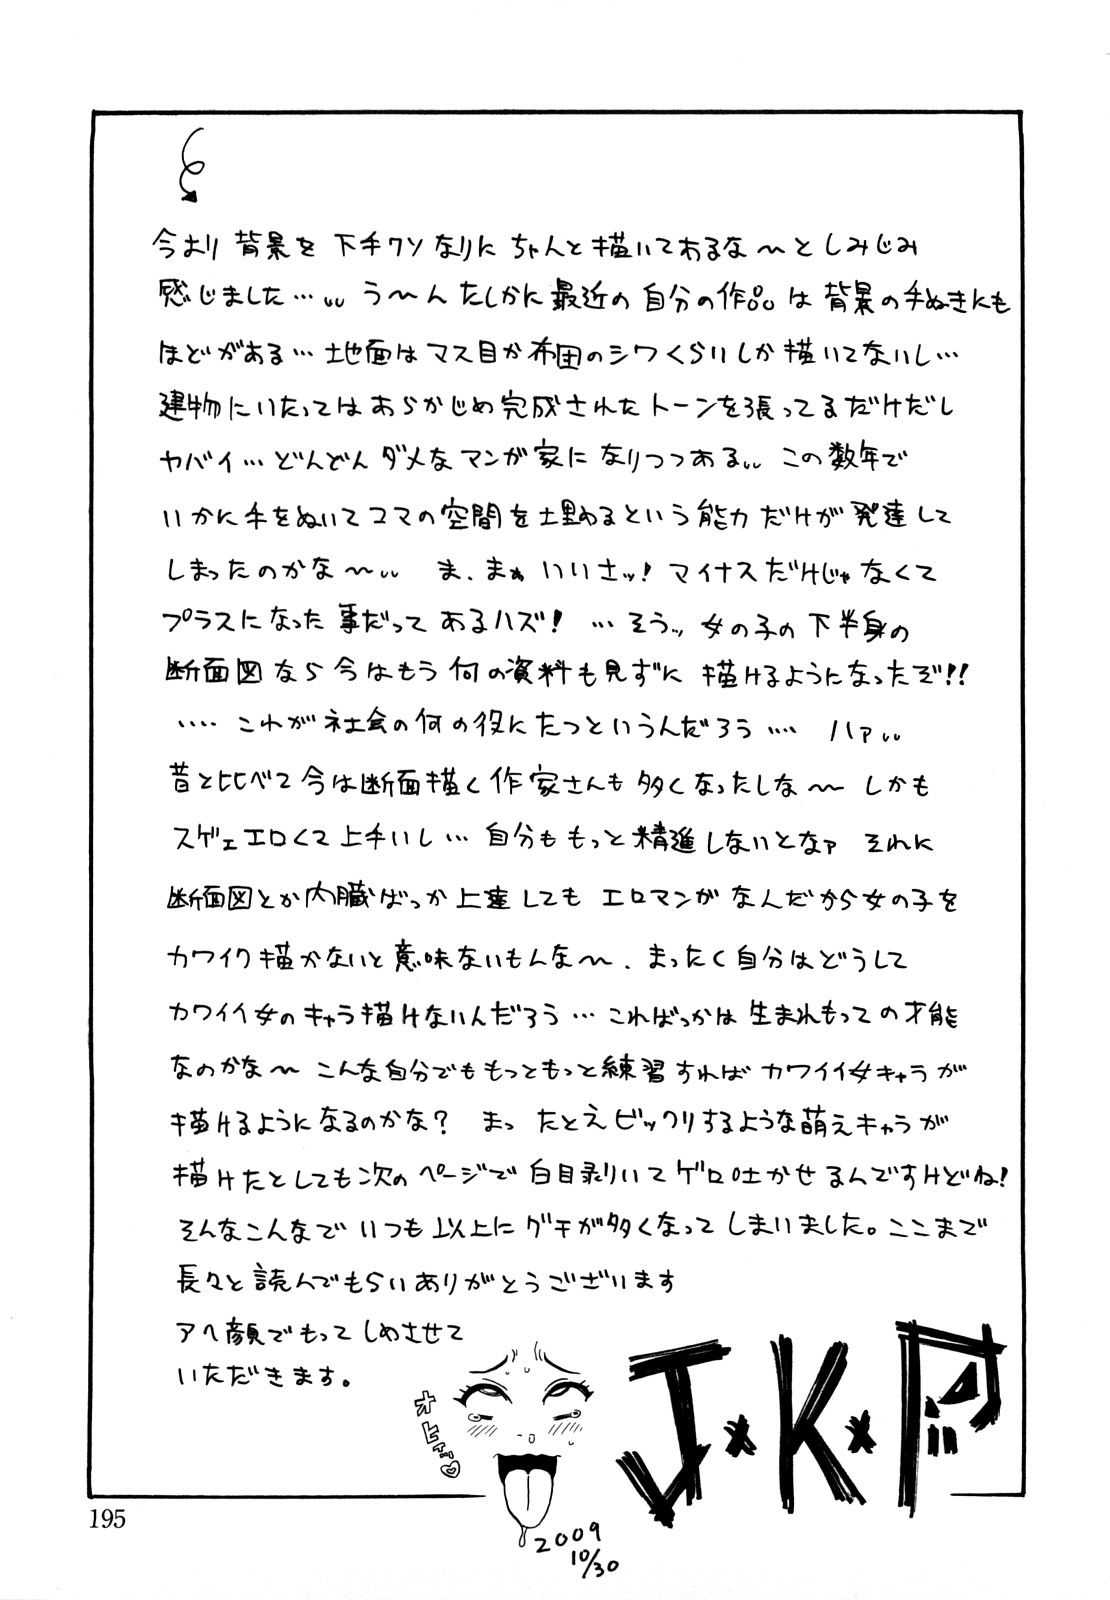 今より背景を下手クソなりにちゃんと描いてあるな〜としみじみ
感じました…‥う〜んたしかに最近の自分の作品は背景の手ぬきにも
ほどがある…地面はマス目か布団のシワくらいしか描いてないし…
建物にいたってはあらかじめ完成されたトーンを張ってるだけだし
ヤバイ…どんどんダメなマンガ家になりつつある‥この数年で
いかに手をぬいてコマの空間を埋めるという能力だけが発達して
しまったのかな〜‥ま、まぁいいさッ!マイナスだけじゃなくて
プラスになった事だってあるハズ!…そうッ女の子の下半身の
断面図なら今はもう何の資料も見ずに描けるようになったぞ!!
‥‥これが社会の何の役にたつというんだろう‥‥ハァ‥
昔と比べて今は断面描く作家さんも多くなったしな〜しかも
スゲェエロくて上手いし…自分ももっと精進しないとなァそれに
断面図とか内臓ばっか上達してもエロマンガなんだから女の子を
カワイク描かないと意味ないもんな〜、まったく自分はどうして
カワイイ女のキャラ描けないんだろう…こればっかは生まれもっての才能
なのかな〜こんな自分でももっともっと練習すればカワイイ女キャラが
描けるようになるのかな?まったとえビックリするような萌えキャラが
描けたとしても次のページで白目剥いてゲロ吐かせるんですけどね!
そんなこんなでいつも以上にグチが多くなってしまいました。ここまで
長々と読んでもらいありがとうございます
アヘ顔でもってしめさせて
いただきます。
オヒィ♡
J★K★P
2009
10/30
195